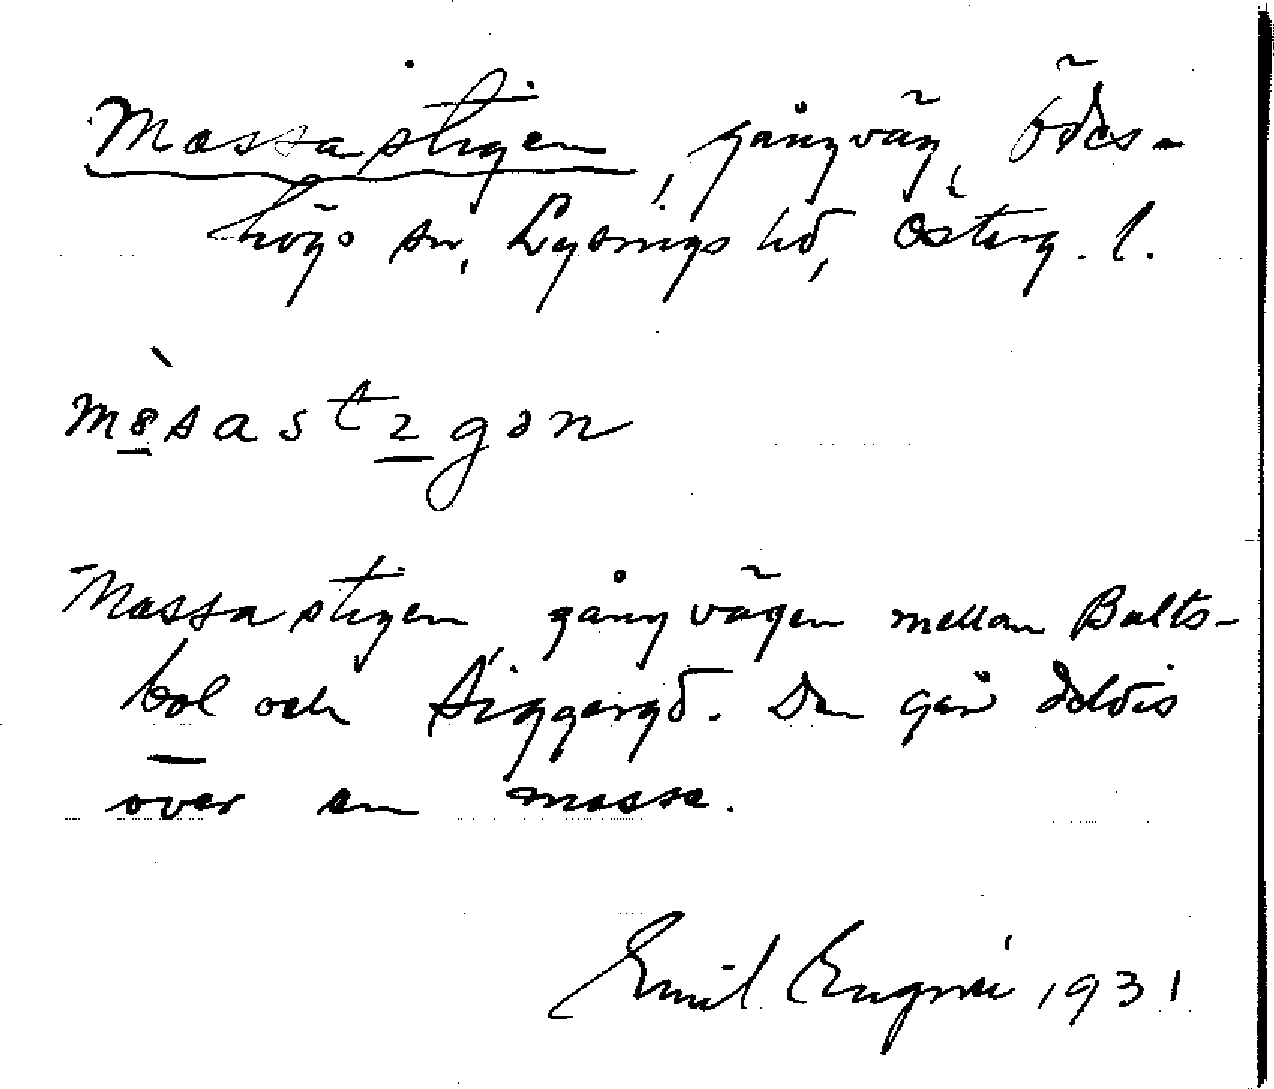 Mossastigen, gångväg, Ödes-
högs sn, Lysings hd, Österg. l.
Mossastigen gångvägen mellan Bults-
bol och Siggargd. Den går delvis
över en mosse.
Emil 1931